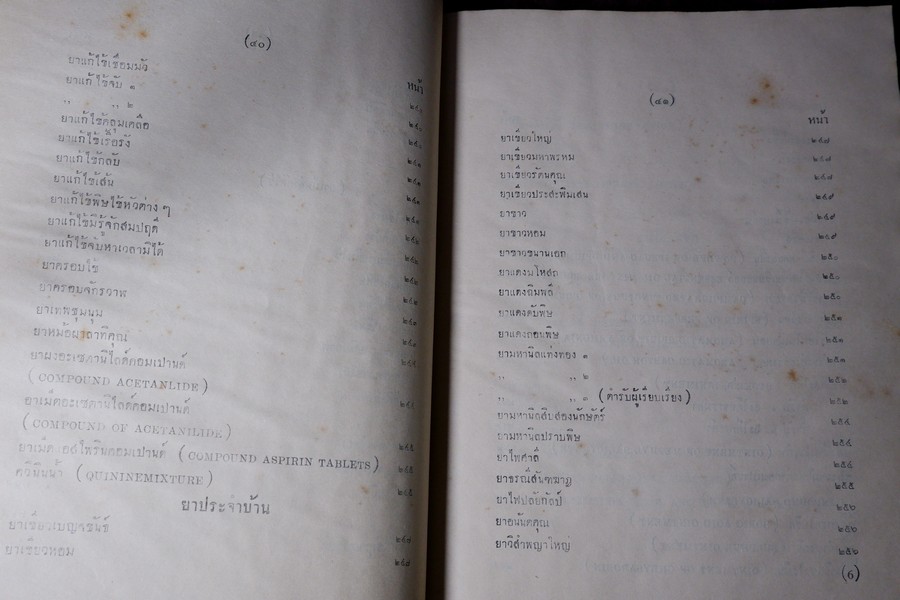 (๔๐)
หน้า
ยาแก้ไข้เชื่อมมัว
ยาแก้ไข้จับ ๑
,, ,, ๒
ยาแก้ไข้คลุมเคลือ
ยาแก้ไข้เรื้อรัง
ยาแก้ไข้กลับ
ยาแก้ไข้เส้น
ยาแก้ไข้พิษไข้หัวต่าง ๆ
ยาแก้ไข้มิรู้จักสมปฤดี
ยาแก้ไข้จับหาเวลามิได้
ยาครอบไข้
ยาครอบจักรวาฬ
ยาเทพชุมนุม
ยาหม้อ
ยาผงอะเซตานิไลด์คอมเปานด์
(COMPOUND ACETANLIDE)
ยาเม็ดอะเซตานิไลด์คอมเปานด์
(COMPOUND OF ACETANILIDE)
ยาเม็ดแอสไพรินคอมเปานด์ (COMPOUND ASPIRIN TABLETS) ๒๔๕
ควินินน้ำ (QUININEMIXTURE) ๒๔๕
ยาประจำบ้าน
ยาเขียวเบญจขันธ์ ๒๔๗
ยาเขียวหอม ๒๔๗
(๔๑)
หน้า
ยาเขียวใหญ่ ๒๔๗
ยาเขียวมหาพรหม ๒๔๗
ยาเขียวรัตนคุณ ๒๔๗
ยาเขียวประสะพิมเสน ๒๔๙
ยาขาว ๒๔๙
ยาขาวหอม ๒๔๙
ยาขาวชนานเอก ๒๕๐
ยาแดงนโหสถ ๒๕๐
ยาแดงทิมพลี ๒๕๐
ยาแดงดับพิษ
ยาแดงถอนพิษ ๒๕๑
ยามหานิลแท่งทอง ๑ ๒๕๑
,, ,, ๒ ๒๕๒
,, ,, ๓ (ตำรับผู้เรียบเรียง) ๒๕๒
ยามหานิลสิบสองนักษัตร์ ๒๕๔
ยามหานิลปราบพิษ ๒๕๔
ยาไฟศาลี ๒๕๔
ยาธรณีสันฑฆาฏ ๒๕๕
ยาไฟปลัยกัลป์ ๒๕๖
ยาอนันตคุณ ๒๕๖
ยาวิสำพญาใหญ่ ๒๕๖
(6)